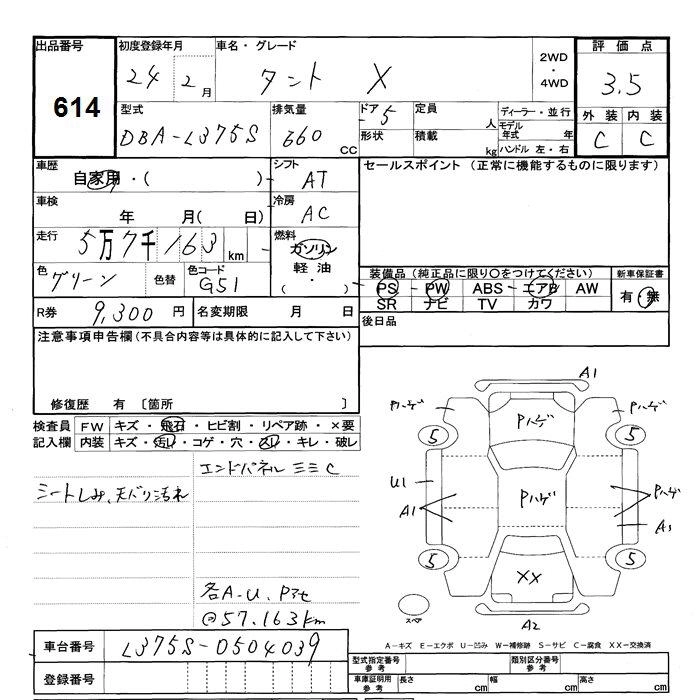 出品番号 初度登録年月 車名・グレード 2WD・4WD 評価点
614 24 2月 タント X 3.5
型式 排気量 ドア 5 定員 人 ディーラー・並行 外装 内装
DBA-L375S 660 CC 形状 積載 kg モデル年式 年 ハンドル 左・右 C C
車歴 シフト セールスポイント (正常に機能するものに限ります)
自家用・( ) AT
車検 冷房
年 月( 日) AC
走行 燃料
5万7千163 km ガソリン
軽油
・
( )
色 色替 色コード
グリーン G51
装備品 (純正品に限り○をつけてください) 新車保証書
PS PW ABS エアB AW 有・無
SR ナビ TV カワ
R券 9,300 円 名変期限 月 日 後日品
注意事項申告欄(不具合内容等は具体的に記入して下さい)
修復歴 有 〔箇所 〕
検査員 FW キズ・飛石・ヒビ割・リペア跡・×要
記入欄 内装 キズ・汚れ・コゲ・穴・スレ・キレ・破レ
エンドパネル ミミC
シートしみ、天バリ汚れ
各A-U、Pアセ
@57.163km
A1
Pハゲ Pハゲ Pハゲ
5 5
U1 Pハゲ Pハゲ
A1 A1
5 5
XX
スペア A2
A-キズ E-エクボ U-凹み W-補修跡 S-サビ C-腐食 XX-交換済
車台番号 L375S-0504039
登録番号
型式指定番号 参考 類別区分番号 参考
車庫証明用 参考 長さ cm 幅 cm 高さ cm